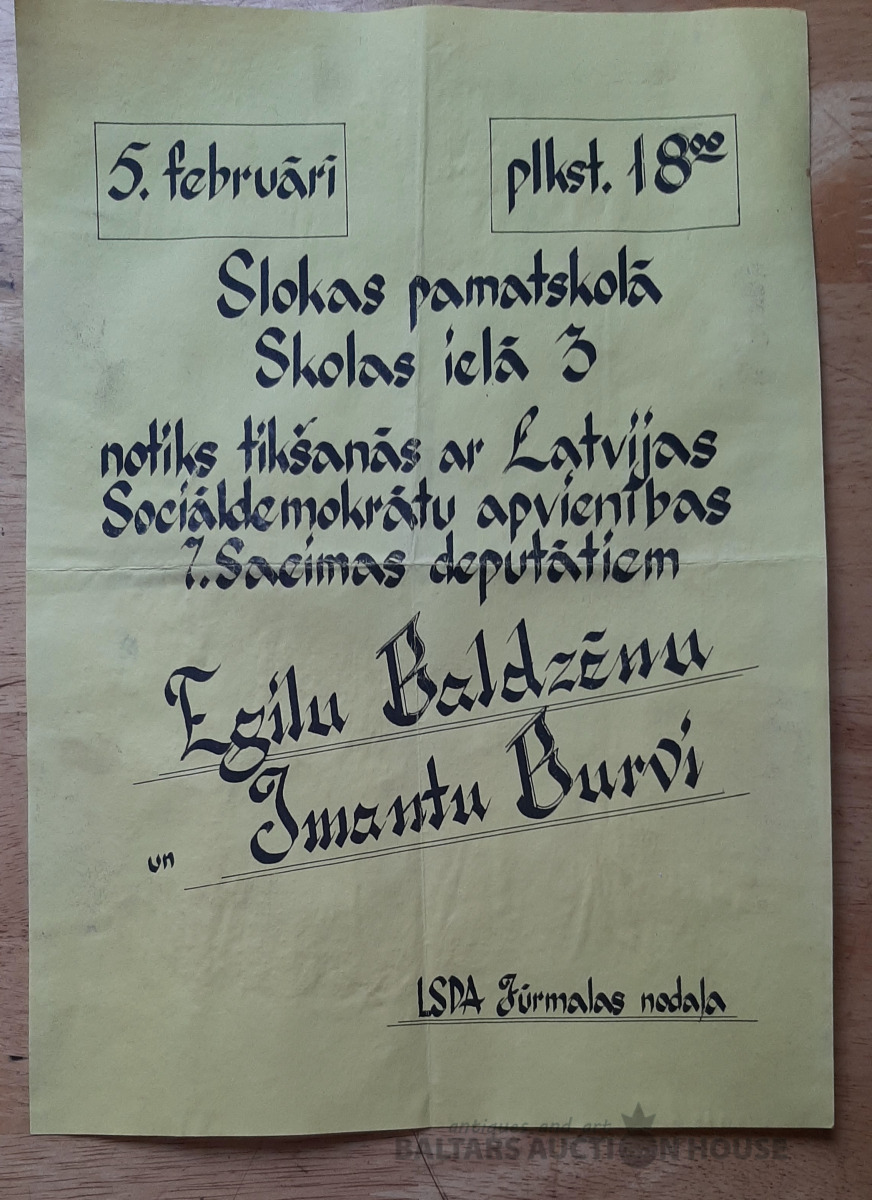 5. februārī
plkst. 18⁰⁰
Slokas pamatskolā
Skolas ielā 3
notiks tikšanās ar Latvijas
Sociāldemokrātu apvienības
7. Saeimas deputātiem
Egilu Baldzēnu
un Imantu Burvi
LSDA Jūrmalas nodaļa
antiques and art
BALTARS AUCTION HOUSE